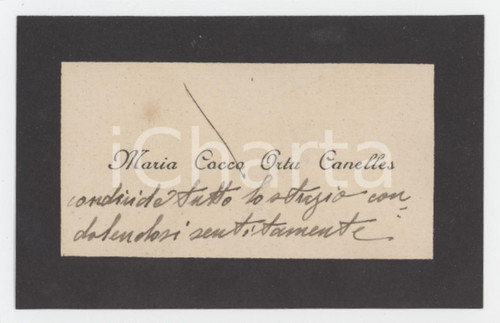 Maria Cocco Ortu Canelles
condivide tutto lo strazio con-
dolendosi sentitamente.
iCharta